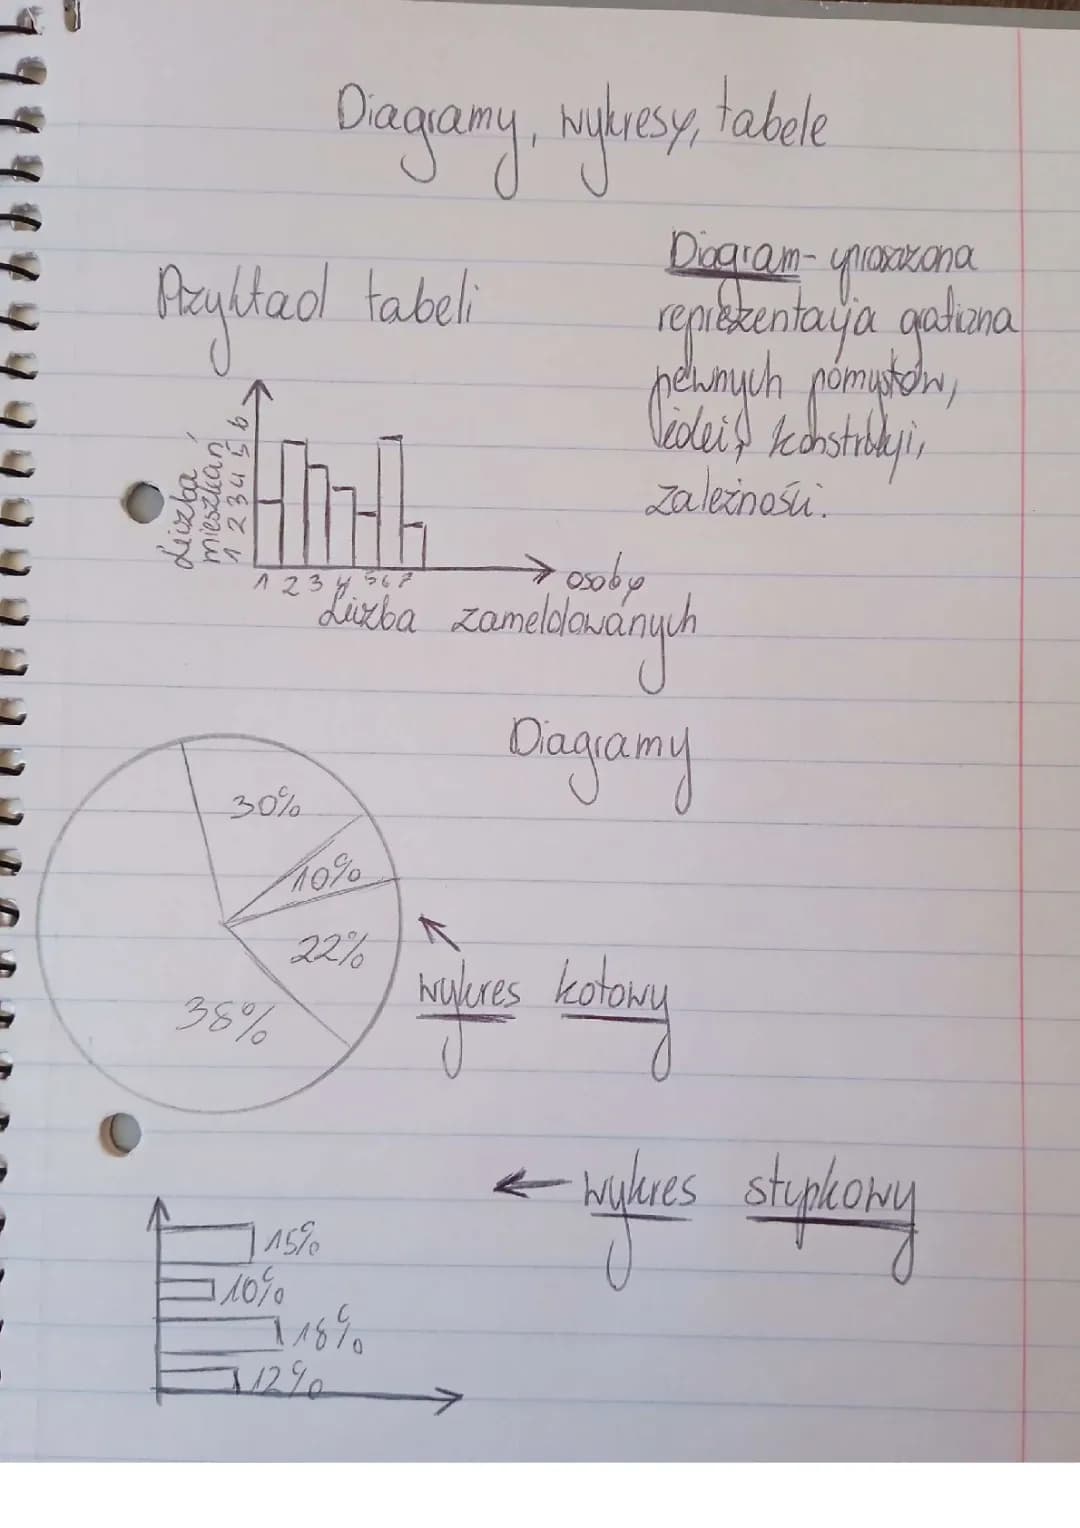 Diagramy, wykresy, tabele
Przykład tabeli
Diagram - uproszczona
reprezentacja graficzna
pewnych pomysłów,
idei, konstrukcji,
zależności.
Liczba
mieszkań
1 2 3 4 5 6
1 2 3 4 5 6 7
osoby
Liczba zameldowanych
Diagramy
30%
10%
22%
38%
wykres kołowy
wykres słupkowy
15%
10%
18%
12%